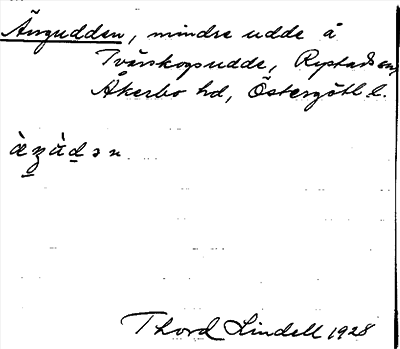 Ängudden, mindre udde å
Tvärskogsudde, Rystads sn,
Åkerbo hd, Östergötl l.
Thord Lindell 1928